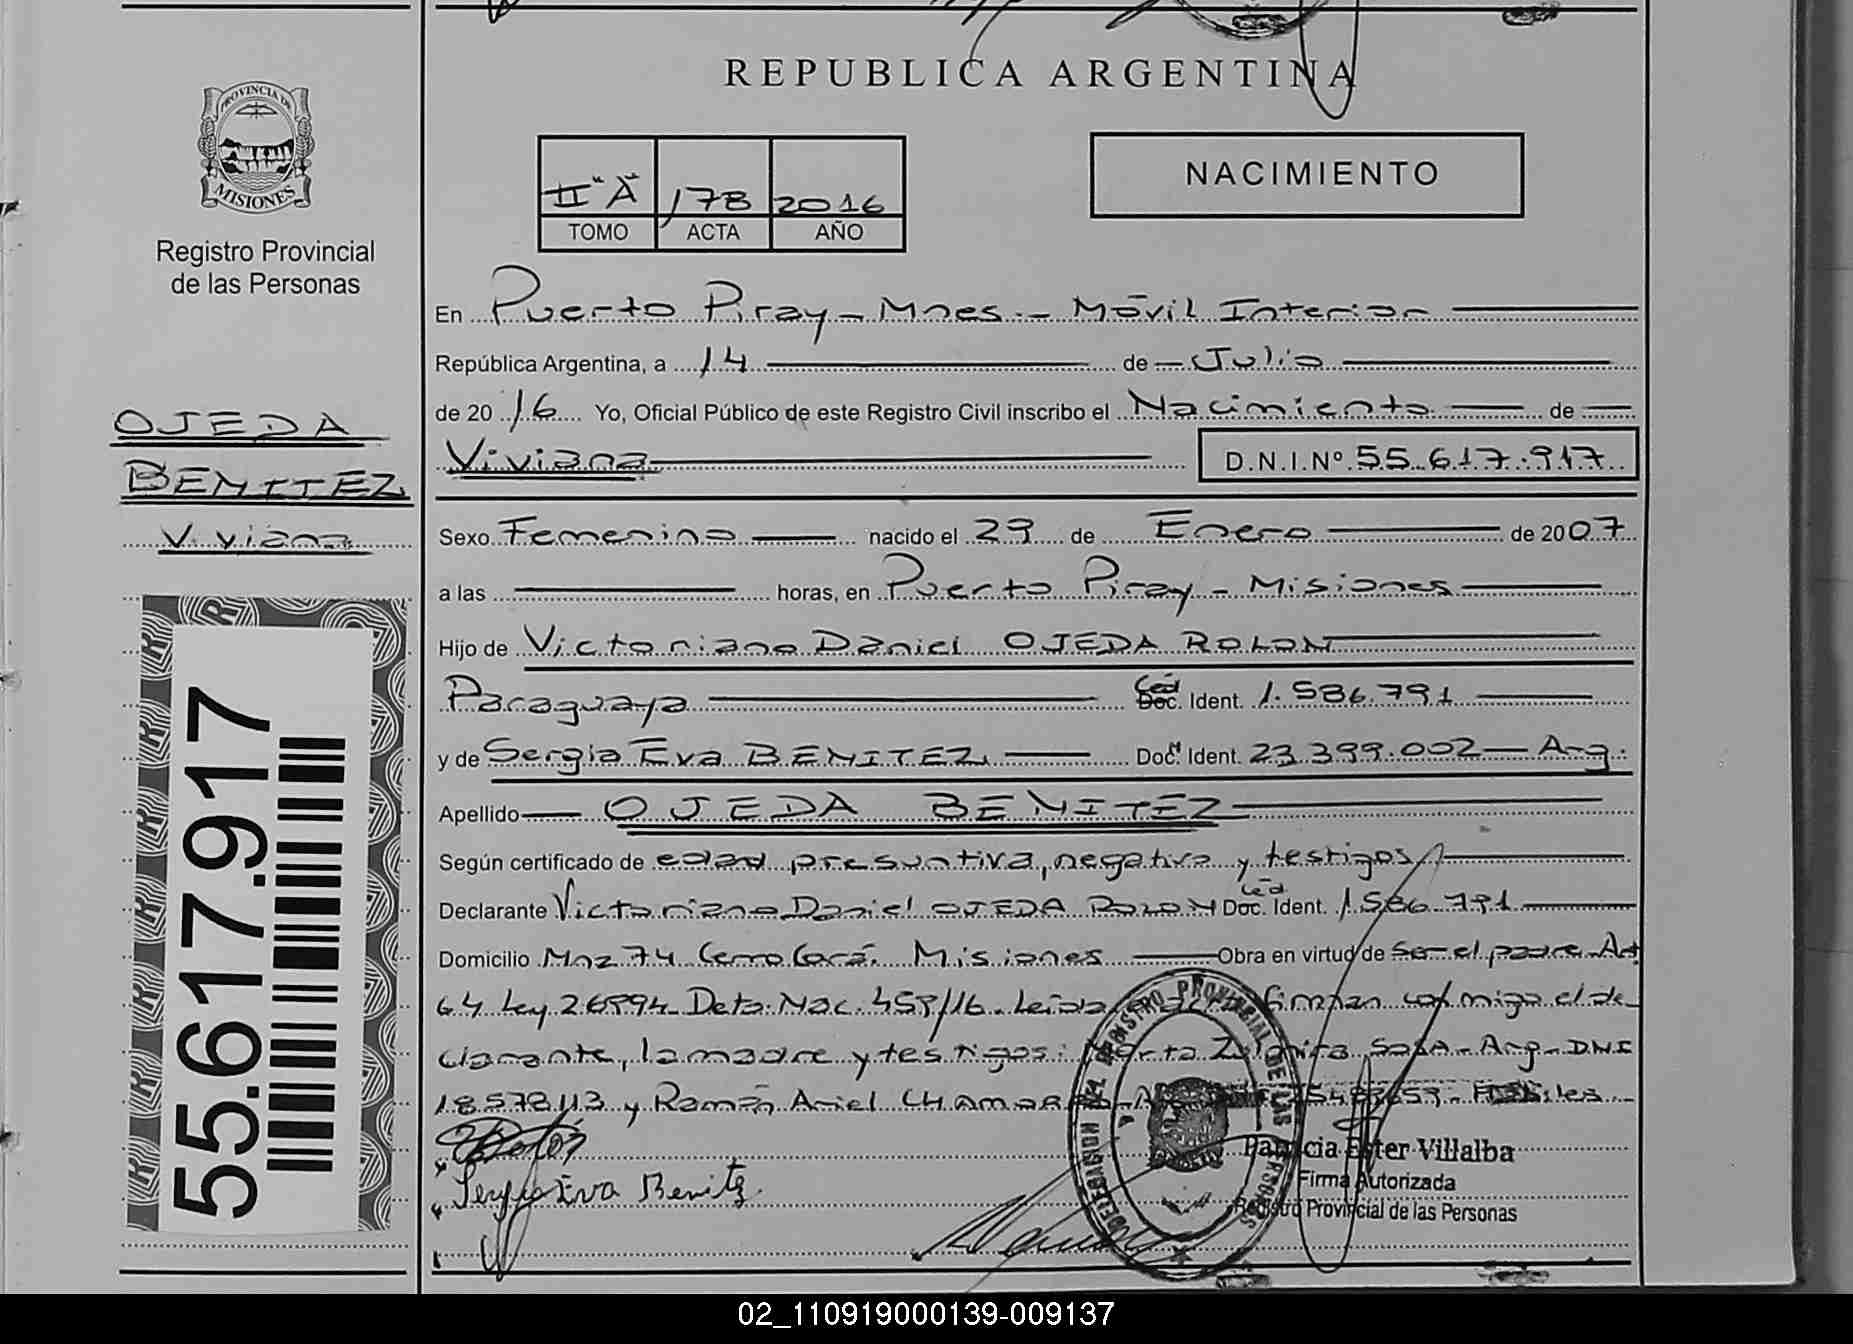 REPUBLICA ARGENTINA
PROVINCIA DE
MISIONES
Registro Provincial
de las Personas
II "A" 178 2016
TOMO ACTA AÑO
NACIMIENTO
En Puerto Piray - Mnes. - Móvil Interior
República Argentina, a 14 de Julio
de 20 16 Yo, Oficial Público de este Registro Civil inscribo el Nacimiento de
Viviana D.N.I.Nº 55.617.917
OJEDA
BENITEZ
Viviana
Sexo Femenino nacido el 29 de Enero de 2007
a las horas, en Puerto Piray - Misiones
Hijo de Victoriano Daniel OJEDA ROLON
Paraguaya Céd Doc. Ident. 1.586.791
y de Sergia Eva BENITEZ Doc. Ident. 23.399.002 - Arg.
Apellido OJEDA BENITEZ
Según certificado de edad presuntiva, negativa y testigos
Declarante Victoriano Daniel OJEDA ROLON Céd Doc. Ident. 1.586.791
Domicilio Mnz 74 Cerro Corá. Misiones Obra en virtud de ser el padre Art
64 Ley 26994 Deto. Nac. 459/16. Leida firman conmigo el de-
clarante, la madre y testigos: SOSA - Arg - DNI
18.578.113 y Ramón Ariel
55.617.917
Sergia Eva Benitez
DELEGACION REGISTRO PROVINCIAL DE LAS PERSONAS
Patricia Ester Villalba
Firma Autorizada
Registro Provincial de las Personas
02_110919000139-009137